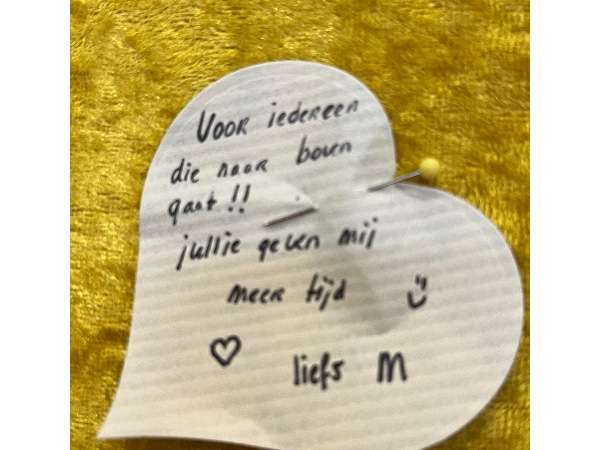 Voor iedereen
die naar boven
gaat !!
jullie geven mij
meer tijd
liefs M